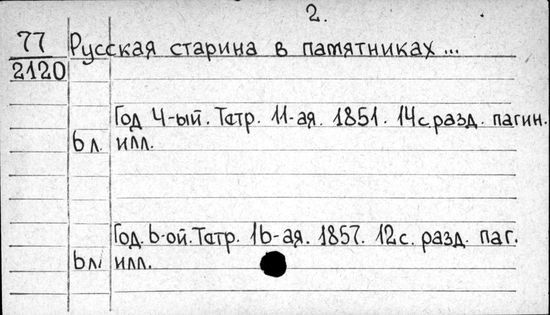 2.
77 Русская старина в памятниках...
2120
Год 4-ый. Татр. 11-ая. 1851. 14 с. разд. пагин.
6 л. илл.
Год 6-ой. Татр. 16-ая. 1857. 12 с. разд. паг.
6 л. илл.